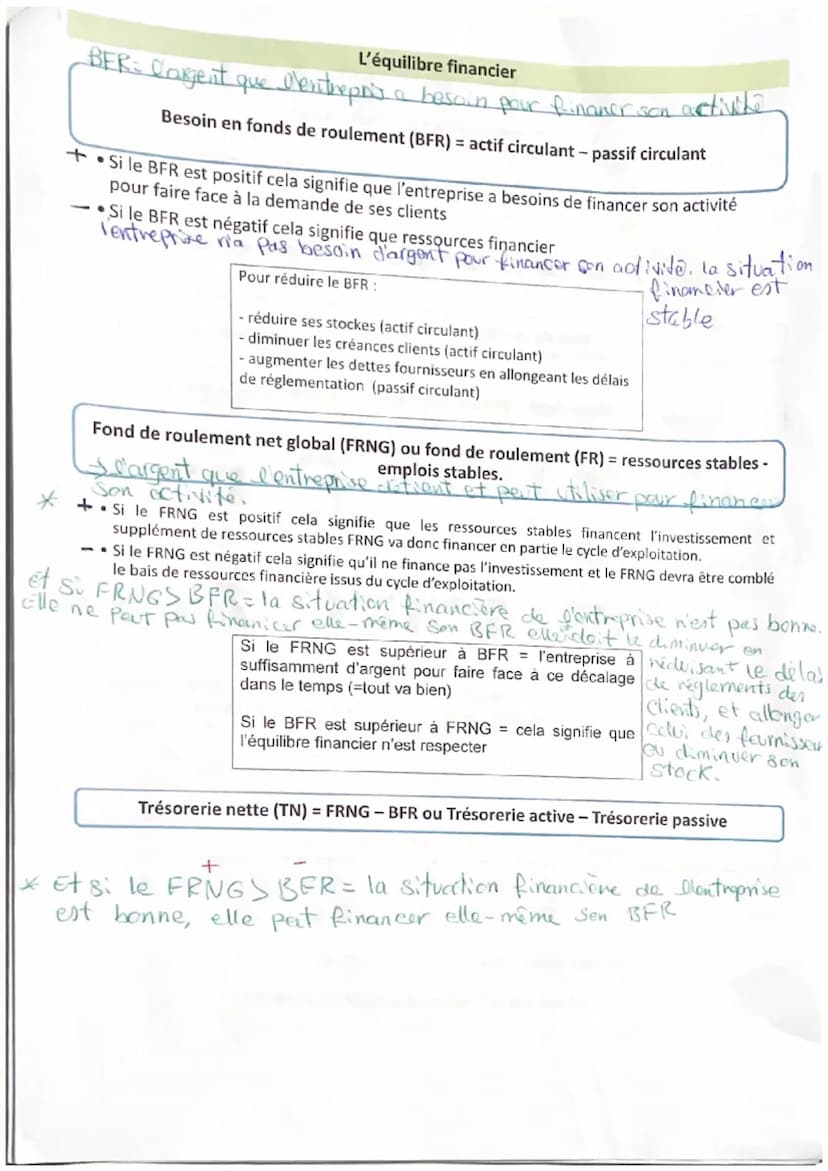 L'équilibre financier
BFR = l'argent que l'entrepris a besoin pour financer son activité
Besoin en fonds de roulement (BFR) = actif circulant – passif circulant
+ • Si le BFR est positif cela signifie que l'entreprise a besoins de financer son activité
pour faire face à la demande de ses clients
– • Si le BFR est négatif cela signifie que ressources financier
l'entreprise n'a pas besoin d'argent pour financer son activité. la situation
financier est
stable
Pour réduire le BFR :
- réduire ses stockes (actif circulant)
- diminuer les créances clients (actif circulant)
- augmenter les dettes fournisseurs en allongeant les délais
de réglementation (passif circulant)
Fond de roulement net global (FRNG) ou fond de roulement (FR) = ressources stables -
emplois stables.
→ l'argent que l'entreprise détient et peut utiliser pour financer
son activité.
* + • Si le FRNG est positif cela signifie que les ressources stables financent l'investissement et
supplément de ressources stables FRNG va donc financer en partie le cycle d'exploitation.
– • Si le FRNG est négatif cela signifie qu'il ne finance pas l'investissement et le FRNG devra être comblé
le bais de ressources financière issus du cycle d'exploitation.
et si FRNG > BFR = la situation financière de l'entreprise n'est pas bonne.
Elle ne peut pas financer elle-même son BFR elle doit le diminuer en
réduisant le délai
de règlements des
clients, et allonger
celui des fournisseu
ou diminuer son
stock.
Si le FRNG est supérieur à BFR = l'entreprise à
suffisamment d'argent pour faire face à ce décalage
dans le temps (=tout va bien)
Si le BFR est supérieur à FRNG = cela signifie que
l'équilibre financier n'est respecter
Trésorerie nette (TN) = FRNG – BFR ou Trésorerie active – Trésorerie passive
+ –
* Et si le FRNG > BFR = la situation financière de l'entreprise
est bonne, elle peut financer elle-même son BFR